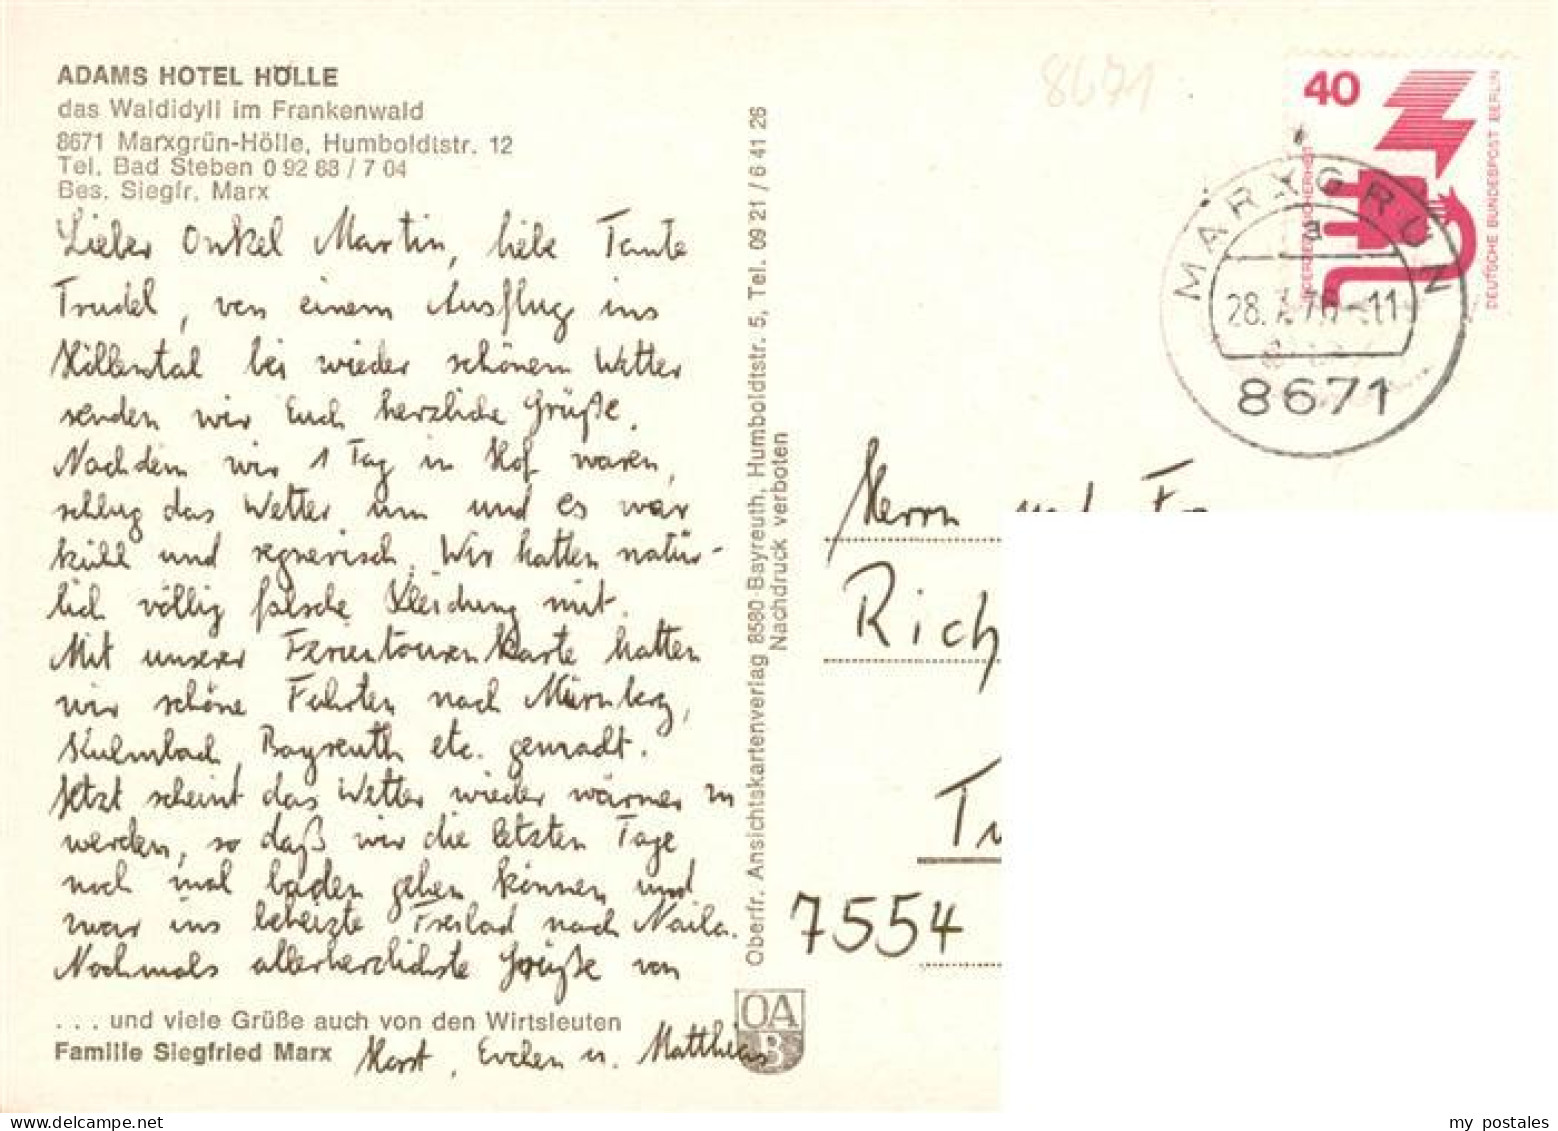 ADAMS HOTEL HÖLLE
das Waldidyll im Frankenwald
8671 Marxgrün-Hölle, Humboldtstr. 12
Tel. Bad Steben 0 92 88 / 7 04
Bes. Siegfr. Marx
Lieber Onkel Martin, liebe Tante
Trudel, von einem Ausflug ins
Höllental bei wieder schönem Wetter
senden wir Euch herzliche Grüße.
Nachdem wir 1 Tag in Hof waren,
schlug das Wetter um und es war
kühl und regnerisch. Wir hatten natür-
lich völlig falsche Kleidung mit.
Mit unserer Ferientourenkarte hatten
wir schöne Fahrten nach Nürnberg,
Kulmbach, Bayreuth etc. gemacht.
Jetzt scheint das Wetter wieder wärmer zu
werden, so daß wir die letzten Tage
noch mal baden gehen können und
zwar ins beheizte Freibad nach Naila.
Nochmals allerherzlichste Grüße von
. . . und viele Grüße auch von den Wirtsleuten
Familie Siegfried Marx
Horst, Evchen u. Matthias
Oberfr. Ansichtskartenverlag 8580 Bayreuth, Humboldtstr. 5, Tel. 09 21 / 6 41 26
Nachdruck verboten
OA
B
8671
40
DEUTSCHE BUNDESPOST BERLIN
MARXGRÜN
a
28. 7. 76 -11
8671
Herrn und Fr
Rich
T
7554
my postales